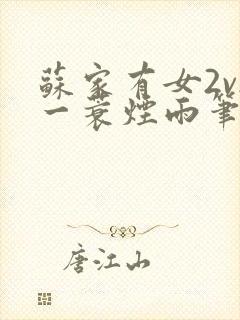 蘇家有女2v
一蓑煙雨筆
唐江山